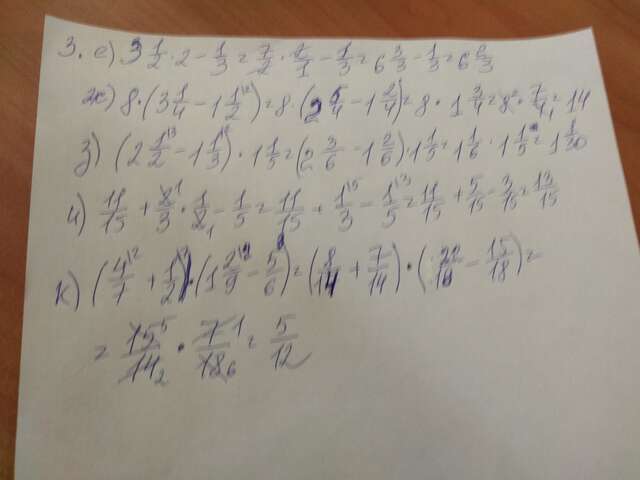 3. е) 3 1/2 · 2 − 1/3 = 7/2 · 2/1 − 1/3 = 6 3/3 − 1/3 = 6 2/3
ж) 8 · (3 1/4 − 1 1/2) = 8 · (2 5/4 − 1 2/4) = 8 · 1 3/4 = 8 · 7/4 = 14
з) (2 1/2 − 1 1/3) · 1 1/5 = (2 3/6 − 1 2/6) · 1 1/5 = 1 1/6 · 1 1/5 = 1 1/30
и) 11/15 + 8/3 · 1/8 − 1/5 = 11/15 + 1/3 − 1/5 = 11/15 + 5/15 − 3/15 = 13/15
к) (4/7 + 1/2) · (1 2/9 − 5/6) = (8/14 + 7/14) · (22/18 − 15/18) =
= 15/14 · 7/18 = 5/12